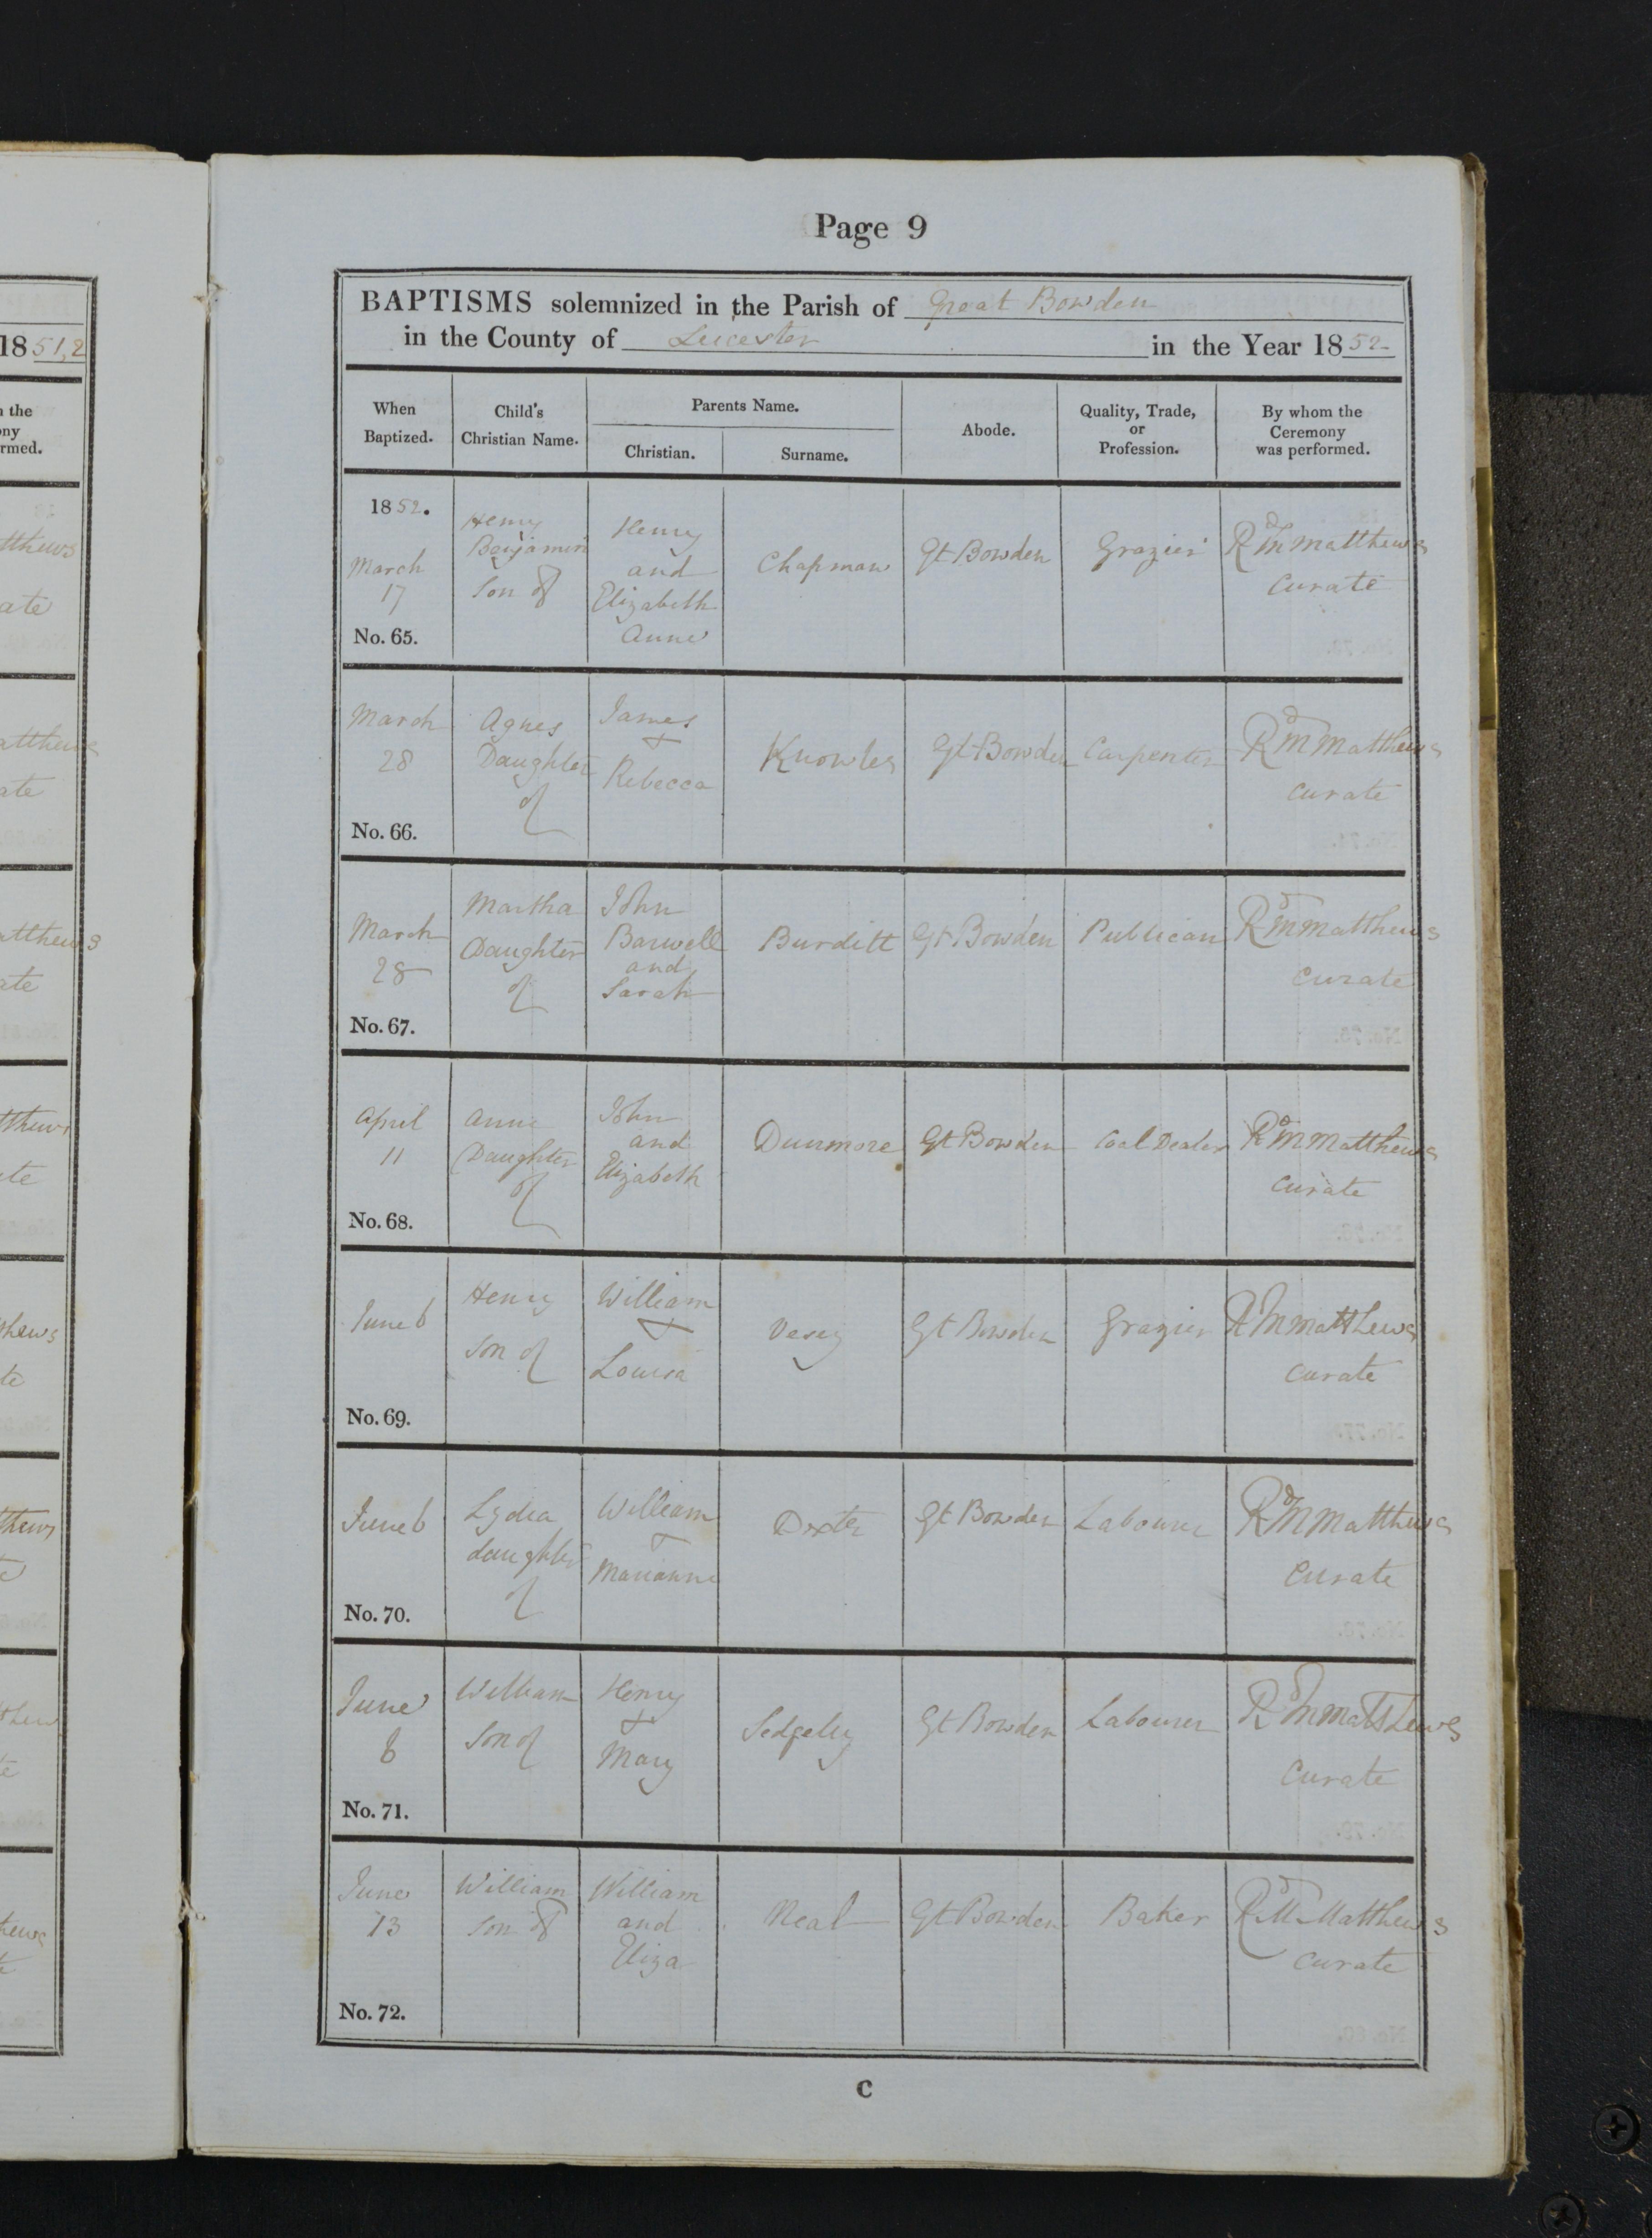 Page 9
BAPTISMS solemnized in the Parish of Great Bowden
in the County of Leicester in the Year 1852
When Baptized.
Child's Christian Name.
Parents Name.
Christian.
Surname.
Abode.
Quality, Trade, or Profession.
By whom the Ceremony was performed.
1852.
March
17
No. 65.
Henry
Benjamin
Son of
Henry
and
Elizabeth
Anne
Chapman
Gt Bowden
Grazier
Rd M Matthews
Curate
March
28
No. 66.
Agnes
Daughter
of
James
+
Rebecca
Knowles
Gt Bowden
Carpenter
Rd M Matthews
Curate
March
28
No. 67.
Martha
Daughter
of
John
Barwell
and
Sarah
Burditt
Gt Bowden
Publican
Rd M Matthews
Curate
April
11
No. 68.
Anne
Daughter
of
John
and
Elizabeth
Dunmore
Gt Bowden
Coal Dealer
Rd M Matthews
Curate
June 6
No. 69.
Henry
Son of
William
+
Louisa
Vesey
Gt Bowden
Grazier
Rd M Matthews
Curate
June 6
No. 70.
Lydia
daughter
of
William
+
Marianne
Dexter
Gt Bowden
Labourer
Rd M Matthews
Curate
June
No. 71.
William
Son of
Henry
+
Mary
Sedgeley
Gt Bowden
Labourer
Rd M Matthews
Curate
June
13
No. 72.
William
Son of
William
and
Eliza
Neal
Gt Bowden
Baker
Rd M Matthews
Curate
C
1851,2